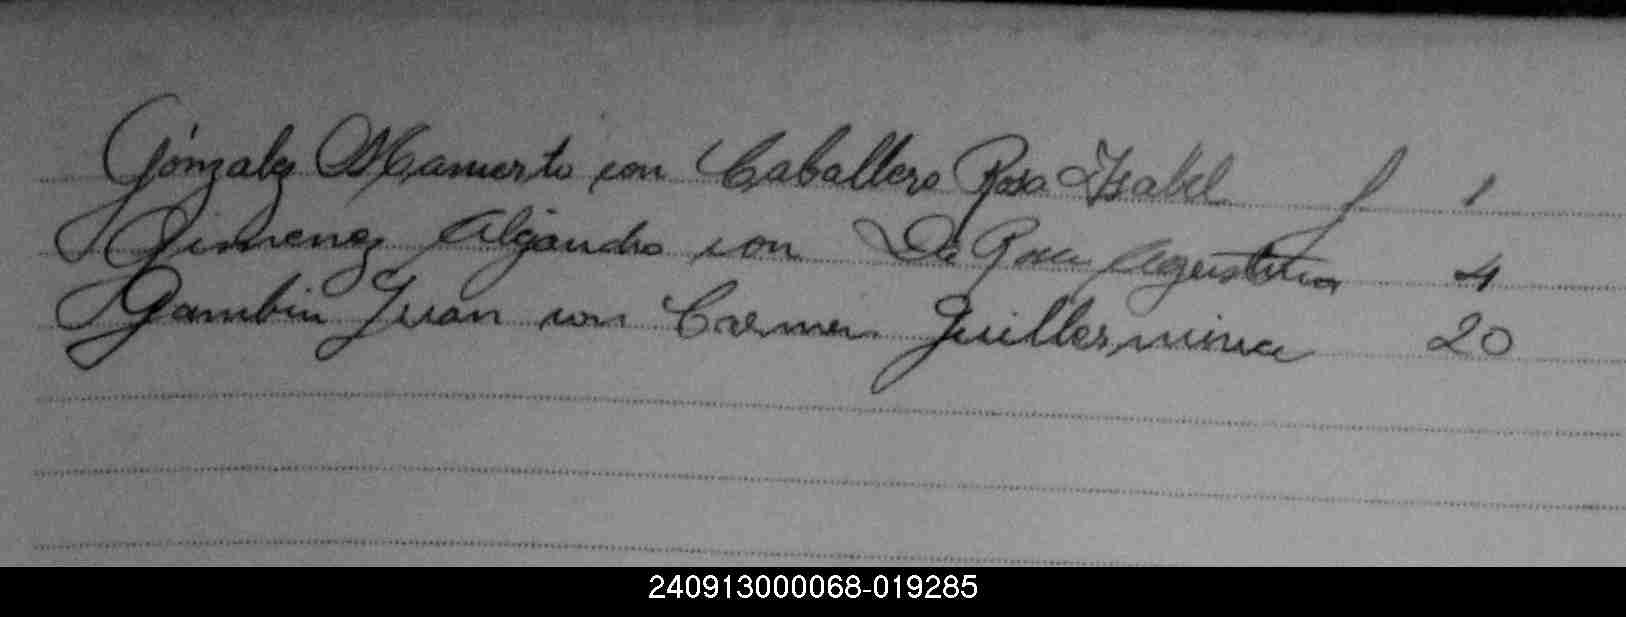 Gonzalez Mamerto con Caballero Rosa Isabel f 1
Jimenez Alejandro con De Rosa Agustina 4
Gambin Juan con Carmen Guillermina 20
240913000068-019285